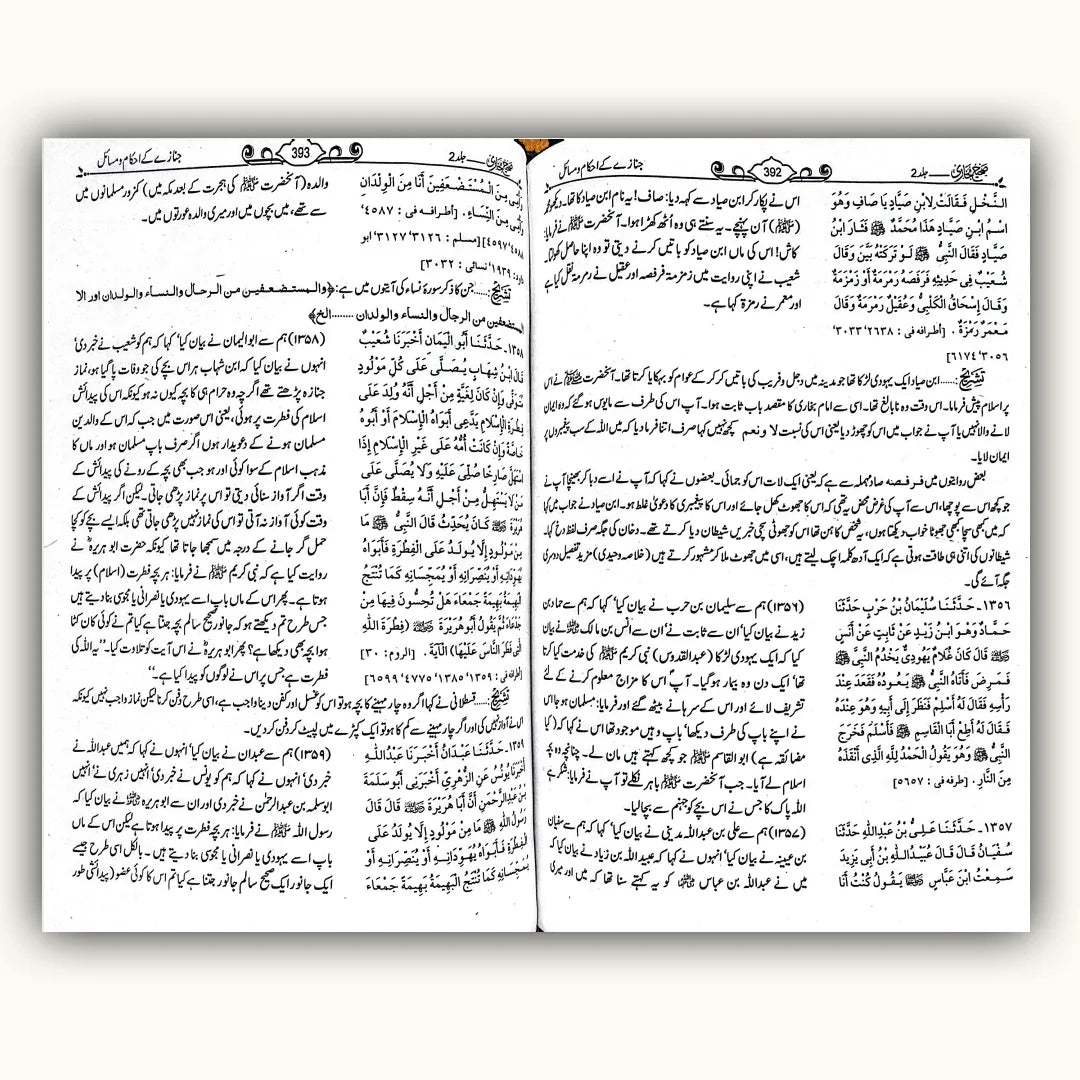 صحیح بخاری جلد 2 392 جنازے کے احکام و مسائل
النَّخْلِ فَقَالَتْ لِابْنِ صَيَّادٍ يَا صَافِ وَهُوَ
اسْمُ ابْنِ صَيَّادٍ هَذَا مُحَمَّدٌ ﷺ فَثَارَ ابْنُ
صَيَّادٍ فَقَالَ النَّبِيُّ ﷺ لَوْ تَرَكَتْهُ بَيَّنَ وَقَالَ
شُعَيْبٌ فِي حَدِيثِهِ فَرَفَصَهُ رَمْرَمَةٌ أَوْ زَمْزَمَةٌ
وَقَالَ إِسْحَاقُ الْكَلْبِيُّ وَعُقَيْلٌ رَمْرَمَةٌ وَقَالَ
مَعْمَرٌ رَمْزَةٌ . [أطرافه في : ٢٦٣٨، ٣٠٣٣
٣٠٥٦، ٦١٧٤]
اس نے پکار کر ابن صیاد سے کہہ دیا: صاف! یہ نام ابن صیاد کا تھا۔ دیکھو محمد
(ﷺ) آن پہنچے۔ یہ سنتے ہی وہ اٹھ کھڑا ہوا۔ آنحضرت ﷺ نے فرمایا:
کاش! اس کی ماں ابن صیاد کو باتیں کرنے دیتی تو وہ اپنا حال کھولتا۔
شعیب نے اپنی روایت میں زمزمة فرفصه اور عقیل نے رمرمة نقل کیا ہے
اور معمر نے رمزة کہا ہے۔
تشریح:......ابن صیاد ایک یہودی لڑکا تھا جو مدینہ میں دجل و فریب کی باتیں کر کر کے عوام کو بہکایا کرتا تھا۔ آنحضرت ﷺ نے اس
پر اسلام پیش فرمایا۔ اس وقت وہ نابالغ تھا۔ اسی سے امام بخاری کا مقصد باب ثابت ہوا۔ آپ اس کی طرف سے مایوس ہو گئے کہ وہ ایمان
لانے والا نہیں یا آپ نے جواب میں اس کو چھوڑ دیا یعنی اس کی نسبت لا و نعم کچھ نہیں کہا صرف اتنا فرما دیا کہ میں اللہ کے سب پیغمبروں پر
ایمان لایا۔
بعض روایتوں میں فرفصه صاد مہملہ سے ہے یعنی ایک لات اس کو جمائی۔ بعضوں نے کہا کہ آپ نے اسے دبا کر بھینچا آپ نے
جو کچھ اس سے پوچھا، اس سے آپ کی غرض محض یہ تھی کہ اس کا جھوٹ کھل جائے اور اس کا پیغمبری کا دعویٰ غلط ہو۔ ابن صیاد نے جواب میں کہا
کہ میں کبھی سچا کبھی جھوٹا خواب دیکھتا ہوں، یہ شخص کاہن تھا اس کو جھوٹی سچی خبریں شیطان دیا کرتے تھے۔ دخان کی جگہ صرف لفظ دخ کہا۔
شیطانوں کی اتنی ہی طاقت ہوتی ہے کہ ایک آدھ کلمہ اچک لیتے ہیں، اسی میں جھوٹ ملا کر مشہور کرتے ہیں (خلاصہ وحیدی) مزید تفصیل دوسری
جگہ آئے گی۔
١٣٥٦- حَدَّثَنَا سُلَيْمَانُ بْنُ حَرْبٍ حَدَّثَنَا
حَمَّادٌ وَهُوَ ابْنُ زَيْدٍ عَنْ ثَابِتٍ عَنْ أَنَسٍ
ﷺ قَالَ كَانَ غُلَامٌ يَهُودِيٌّ يَخْدُمُ النَّبِيَّ ﷺ
فَمَرِضَ فَأَتَاهُ النَّبِيُّ ﷺ يَعُودُهُ فَقَعَدَ عِنْدَ
رَأْسِهِ فَقَالَ لَهُ أَسْلِمْ فَنَظَرَ إِلَى أَبِيهِ وَهُوَ عِنْدَهُ
فَقَالَ لَهُ أَطِعْ أَبَا الْقَاسِمِ ﷺ فَأَسْلَمَ فَخَرَجَ
النَّبِيُّ ﷺ وَهُوَ يَقُولُ الْحَمْدُ لِلَّهِ الَّذِي أَنْقَذَهُ
مِنَ النَّارِ. [طرفه في : ٥٦٥٧]
(۱۳۵۶) ہم سے سلیمان بن حرب نے بیان کیا، کہا کہ ہم سے حماد بن
زید نے بیان کیا، ان سے ثابت نے، ان سے انس بن مالک نے بیان
کیا کہ ایک یہودی لڑکا (عبدالقدوس) نبی کریم ﷺ کی خدمت کیا کرتا
تھا، ایک دن وہ بیمار ہو گیا۔ آپ اس کا مزاج معلوم کرنے کے لئے
تشریف لائے اور اس کے سرہانے بیٹھ گئے اور فرمایا: مسلمان ہو جا اس
نے اپنے باپ کی طرف دیکھا، باپ وہیں موجود تھا اس نے کہا کہ (کیا
مضائقہ ہے) ابو القاسم ﷺ جو کچھ کہتے ہیں مان لے۔ چنانچہ وہ بچہ
اسلام لے آیا۔ جب آنحضرت ﷺ باہر نکلے تو آپ نے فرمایا: شکر ہے
اللہ پاک کا جس نے اس بچے کو جہنم سے بچا لیا۔
١٣٥٧- حَدَّثَنَا عَلِيُّ بْنُ عَبْدِ اللهِ حَدَّثَنَا
سُفْيَانُ قَالَ قَالَ عُبَيْدُ اللهِ بْنُ أَبِي يَزِيدَ
سَمِعْتُ ابْنَ عَبَّاسٍ يَقُولُ كُنْتُ أَنَا
(۱۳۵۷) ہم سے علی بن عبداللہ مدینی نے بیان کیا، کہا کہ ہم سے سفیان
بن عیینہ نے بیان کیا، انہوں نے کہا کہ عبید اللہ بن زیاد نے بیان کیا کہ
میں نے عبداللہ بن عباس کو یہ کہتے سنا تھا کہ میں اور میری
صحیح بخاری جلد 2 393 جنازے کے احکام و مسائل
وَأُمِّي مِنَ الْمُسْتَضْعَفِينَ أَنَا مِنَ الْوِلْدَانِ
وَأُمِّي مِنَ النِّسَاءِ. [أطرافه في : ٤٥٨٧،
٤٥٨٨، ٤٥٩٧] [مسلم : ٣١٢٦، ٣١٢٧، ابو
داود: ١٩٣٩، نسائی : ٣٠٣٢]
والدہ (آنحضرت ﷺ کی ہجرت کے بعد مکہ میں) کمزور مسلمانوں میں
سے تھے، میں بچوں میں اور میری والدہ عورتوں میں۔
تشریح:......جن کا ذکر سورۂ نساء کی آیتوں میں ہے: ﴿والمستضعفين من الرجال والنساء والولدان اور الا
المستضعفين من الرجال والنساء والولدان ........الخ﴾
١٣٥٨- حَدَّثَنَا أَبُو الْيَمَانِ أَخْبَرَنَا شُعَيْبٌ
قَالَ ابْنُ شِهَابٍ يُصَلَّى عَلَى كُلِّ مَوْلُودٍ
مُتَوَفًّى وَإِنْ كَانَ لِغَيَّةٍ مِنْ أَجْلِ أَنَّهُ وُلِدَ عَلَى
فِطْرَةِ الْإِسْلَامِ يَدَّعِي أَبَوَاهُ الْإِسْلَامَ أَوْ أَبُوهُ
خَاصَّةً وَإِنْ كَانَتْ أُمُّهُ عَلَى غَيْرِ الْإِسْلَامِ إِذَا
اسْتَهَلَّ صَارِخًا صُلِّيَ عَلَيْهِ وَلَا يُصَلَّى عَلَى
مَنْ لَا يَسْتَهِلُّ مِنْ أَجْلِ أَنَّهُ سِقْطٌ فَإِنَّ أَبَا
هُرَيْرَةَ كَانَ يُحَدِّثُ قَالَ النَّبِيُّ ﷺ مَا
مِنْ مَوْلُودٍ إِلَّا يُولَدُ عَلَى الْفِطْرَةِ فَأَبَوَاهُ
يُهَوِّدَانِهِ أَوْ يُنَصِّرَانِهِ أَوْ يُمَجِّسَانِهِ كَمَا تُنْتَجُ
الْبَهِيمَةُ بَهِيمَةً جَمْعَاءَ هَلْ تُحِسُّونَ فِيهَا مِنْ
جَدْعَاءَ ثُمَّ يَقُولُ أَبُو هُرَيْرَةَ (فِطْرَةَ اللَّهِ
الَّتِي فَطَرَ النَّاسَ عَلَيْهَا) الْآيَةَ . [الروم : ٣٠]
[أطرافه في : ١٣٥٩، ١٣٨٥، ٤٧٧٥، ٦٥٩٩]
(۱۳۵۸) ہم سے ابو الیمان نے بیان کیا، کہا کہ ہم کو شعیب نے خبر دی،
انہوں نے بیان کیا کہ ابن شہاب ہر اس بچے کی جو وفات پا گیا ہو، نماز
جنازہ پڑھتے تھے اگرچہ وہ حرام ہی کا بچہ کیوں نہ ہو کیونکہ اس کی پیدائش
اسلام کی فطرت پر ہوئی، یعنی اس صورت میں جب کہ اس کے والدین
مسلمان ہونے کے دعویدار ہوں اگر صرف باپ مسلمان ہو اور ماں کا
مذہب اسلام کے سوا کوئی اور ہو جب بھی بچہ کے رونے کی پیدائش کے
وقت اگر آواز سنائی دیتی تو اس پر نماز پڑھی جاتی۔ لیکن اگر پیدائش کے
وقت کوئی آواز نہ آتی تو اس کی نماز نہیں پڑھی جاتی تھی بلکہ ایسے بچے کو کچا
حمل گر جانے کے درجہ میں سمجھا جاتا تھا کیونکہ حضرت ابو ہریرہ نے
روایت کیا ہے کہ نبی کریم ﷺ نے فرمایا: ہر بچہ فطرت (اسلام) پر پیدا
ہوتا ہے۔ پھر اس کے ماں باپ اسے یہودی یا نصرانی یا مجوسی بنا دیتے ہیں
جس طرح تم دیکھتے ہو کہ جانور صحیح سالم بچہ جنتا ہے کیا تم نے کوئی کان کٹا
ہوا بچہ بھی دیکھا ہے؟ پھر ابو ہریرہ نے اس آیت کو تلاوت کیا۔ ”یہ اللہ کی
فطرت ہے جس پر اس نے لوگوں کو پیدا کیا ہے۔“
تشریح:......قسطلانی نے کہا اگر وہ چار مہینے کا بچہ ہو تو اس کو غسل اور کفن دینا واجب ہے، اسی طرح دفن کرنا لیکن نماز واجب نہیں کیونکہ
اس نے آواز نہیں کی اور اگر چار مہینے سے کم کا ہو تو ایک کپڑے میں لپیٹ کر دفن کر دیں۔
١٣٥٩- حَدَّثَنَا عَبْدَانُ أَخْبَرَنَا عَبْدُ اللهِ
أَخْبَرَنَا يُونُسُ عَنِ الزُّهْرِيِّ أَخْبَرَنِي أَبُو سَلَمَةَ
بْنُ عَبْدِ الرَّحْمَنِ أَنَّ أَبَا هُرَيْرَةَ قَالَ قَالَ
رَسُولُ اللَّهِ ﷺ مَا مِنْ مَوْلُودٍ إِلَّا يُولَدُ عَلَى
الْفِطْرَةِ فَأَبَوَاهُ يُهَوِّدَانِهِ أَوْ يُنَصِّرَانِهِ أَوْ
يُمَجِّسَانِهِ كَمَا تُنْتَجُ الْبَهِيمَةُ بَهِيمَةً جَمْعَاءَ
(۱۳۵۹) ہم سے عبدان نے بیان کیا، انہوں نے کہا کہ ہمیں عبداللہ نے
خبر دی، انہوں نے کہا کہ ہم کو یونس نے خبر دی، انہیں زہری نے، انہیں
ابو سلمہ بن عبدالرحمٰن نے خبر دی اور ان سے ابو ہریرہ نے بیان کیا کہ
رسول اللہ ﷺ نے فرمایا: ہر بچہ فطرت پر پیدا ہوتا ہے لیکن اس کے ماں
باپ اسے یہودی یا نصرانی یا مجوسی بنا دیتے ہیں۔ بالکل اسی طرح جیسے
ایک جانور ایک صحیح سالم جانور جنتا ہے کیا تم اس کا کوئی عضو (پیدائشی طور